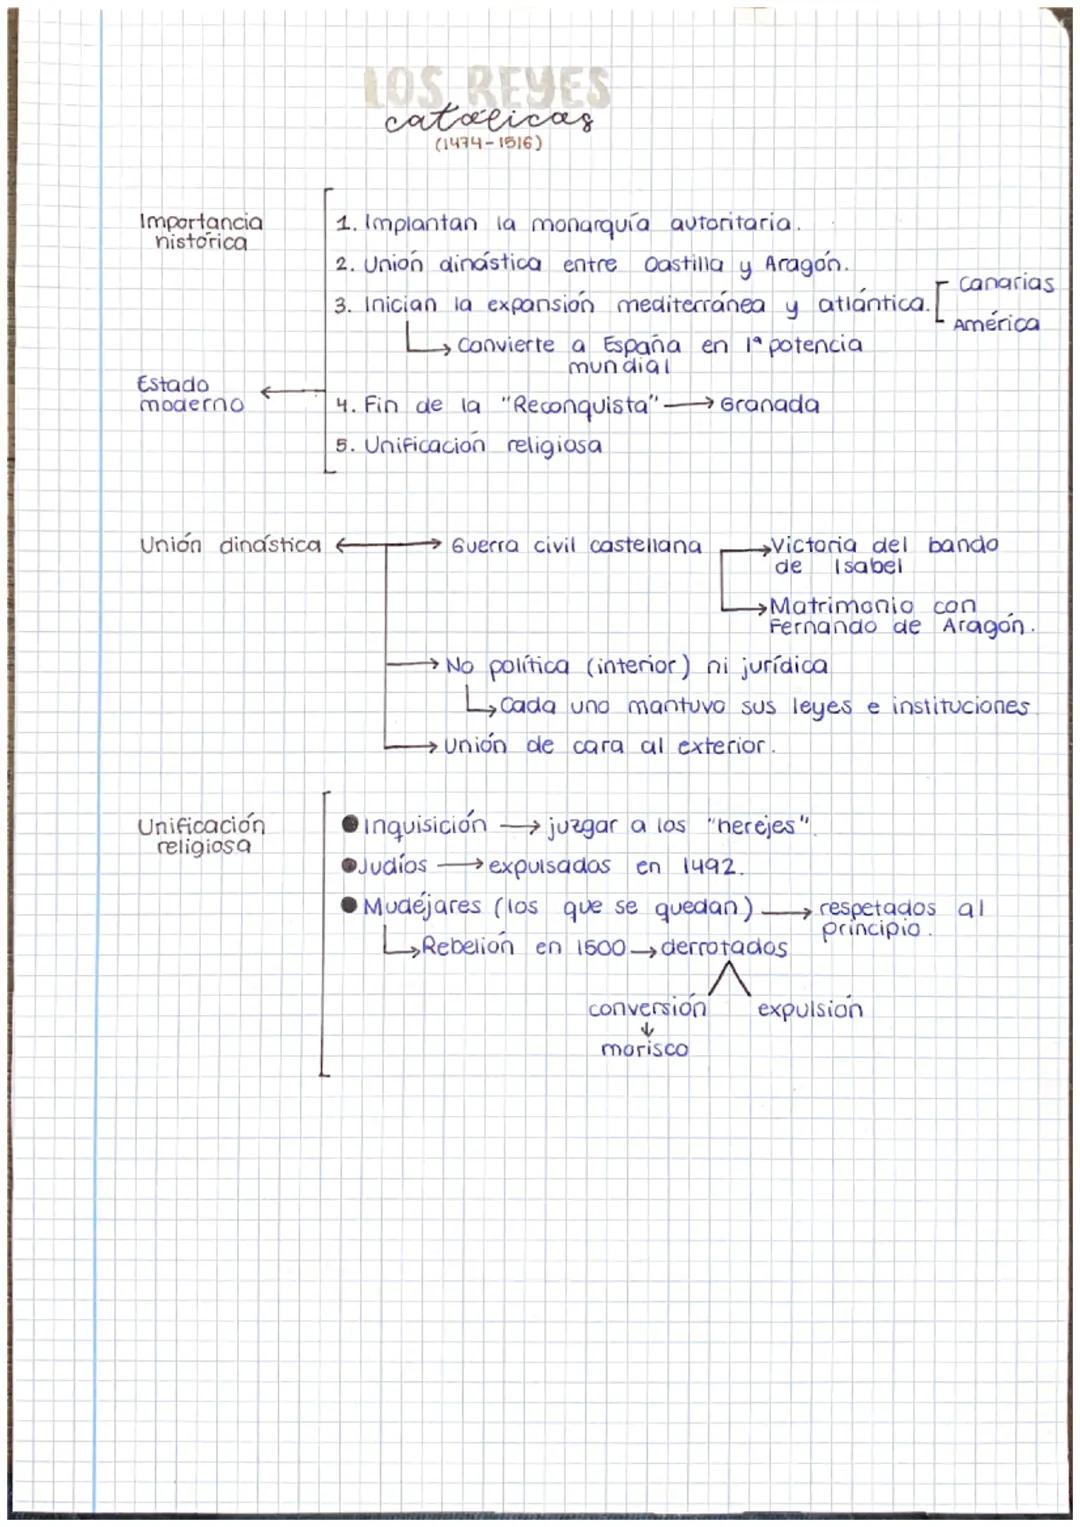 LOS REYES
católicos
(1474-1516)
Importancia
histórica
1. Implantan la monarquía autoritaria.
2. Unión dinástica entre Castilla y Aragón.
3. Inician la expansión mediterránea y atlántica. [ Canarias
América
↳ Convierte a España en 1ª potencia
mundial
Estado
moderno ←
4. Fin de la "Reconquista" → Granada
5. Unificación religiosa
Unión dinástica ← → Guerra civil castellana → Victoria del bando
de Isabel
→ Matrimonio con
Fernando de Aragón.
→ No política (interior) ni jurídica
↳ Cada uno mantuvo sus leyes e instituciones
→ Unión de cara al exterior.
Unificación
religiosa
● Inquisición → juzgar a los "herejes".
● Judíos → expulsados en 1492.
● Mudéjares (los que se quedan) → respetados al
principio.
↳ Rebelión en 1500 → derrotados
conversión expulsión
↓
morisco